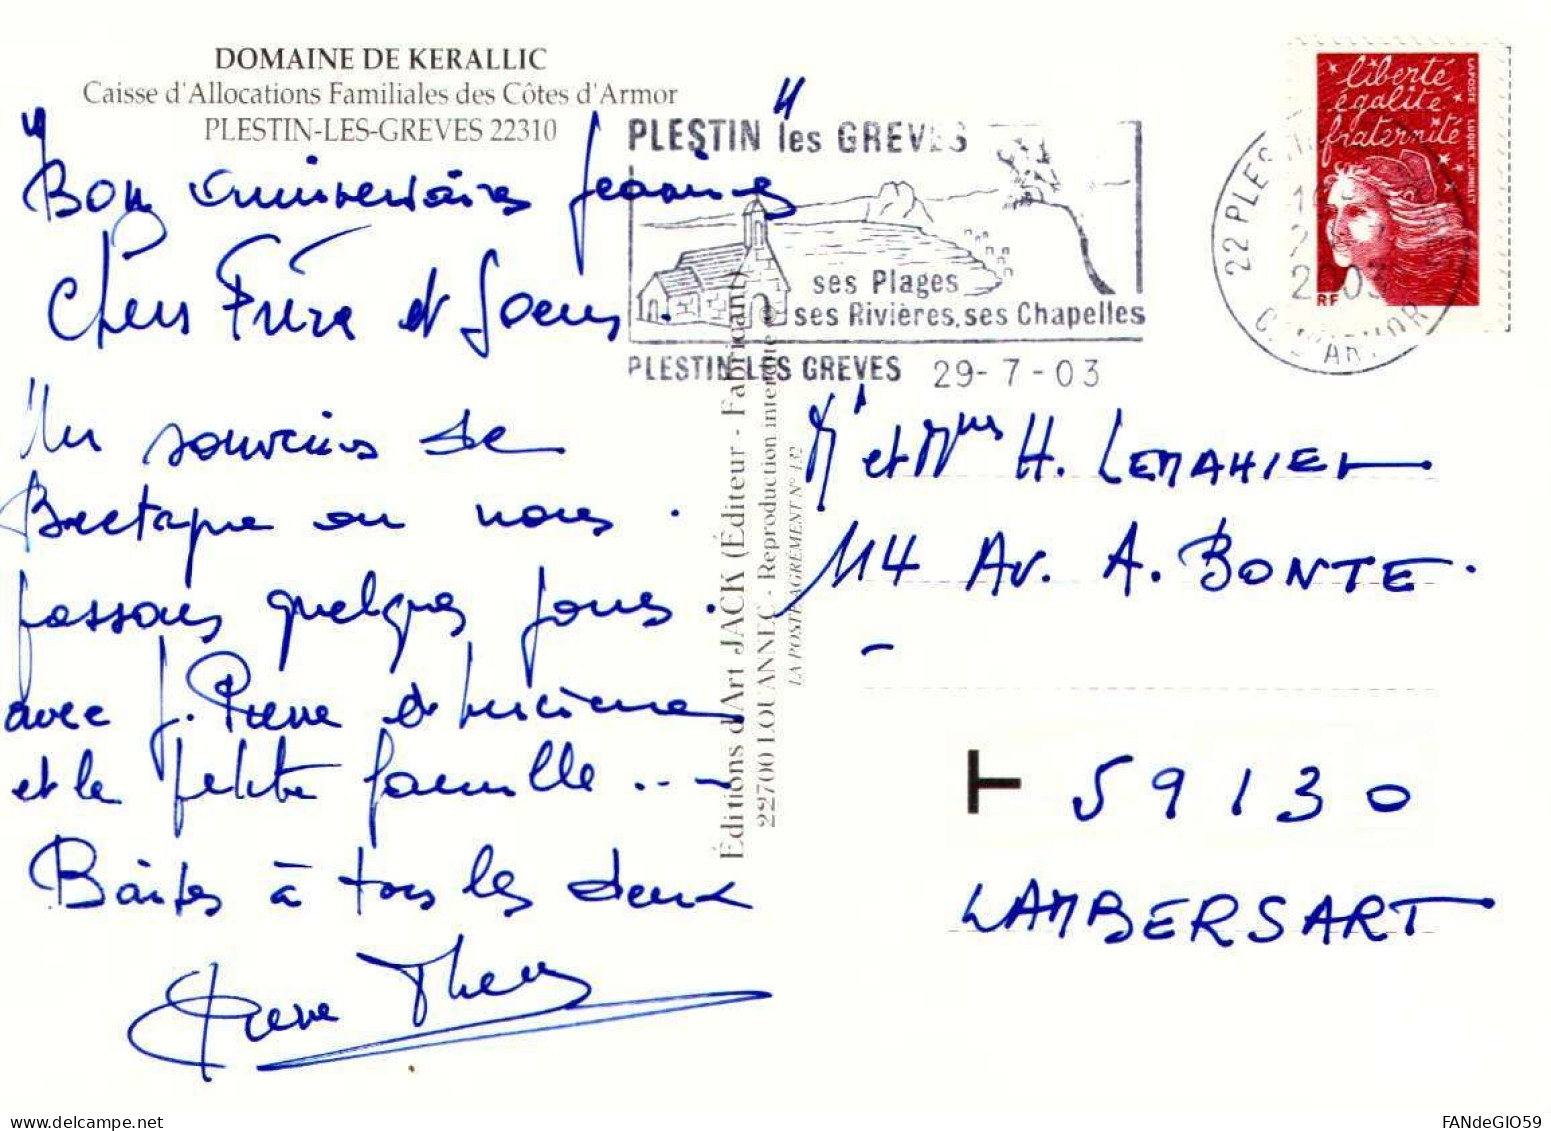 DOMAINE DE KERALLIC
Caisse d'Allocations Familiales des Côtes d'Armor
PLESTIN-LES-GREVES 22310
"Bon anniversaire Jeannine"
Chers Frère et Soeur.
Un souvenir de
Bretagne où nous
passons quelques jours.
avec J. Pierre et Lucienne
et la petite famille ...
Baisers à tous les deux
Pierre
PLESTIN les GREVES
ses Plages
ses Rivières, ses Chapelles
PLESTIN LES GREVES 29-7-03
liberté
égalité
fraternité
LA POSTE LUQUET
RF
22 PLESTIN
2003
C. D'ARMOR
Éditions d'Art JACK (Éditeur - Fabricant)
22700 LOUANNEC - Reproduction interdite
LA POSTE AGRÉMENT N° 132
Mr et Mme H. LEMAHIEU
114 AV. A. BONTE.
-
T 59130
LAMBERSART
FANdeGIO59